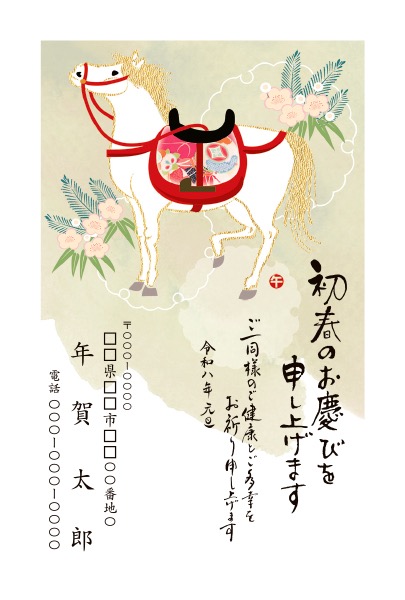 初春のお慶びを
申し上げます
ご一同様のご健康とご多幸を
お祈り申し上げます
令和八年 元旦
午
〒〇〇〇-〇〇〇〇
□□県□□市□□〇〇番地〇
年賀太郎
電話 〇〇〇-〇〇〇-〇〇〇〇